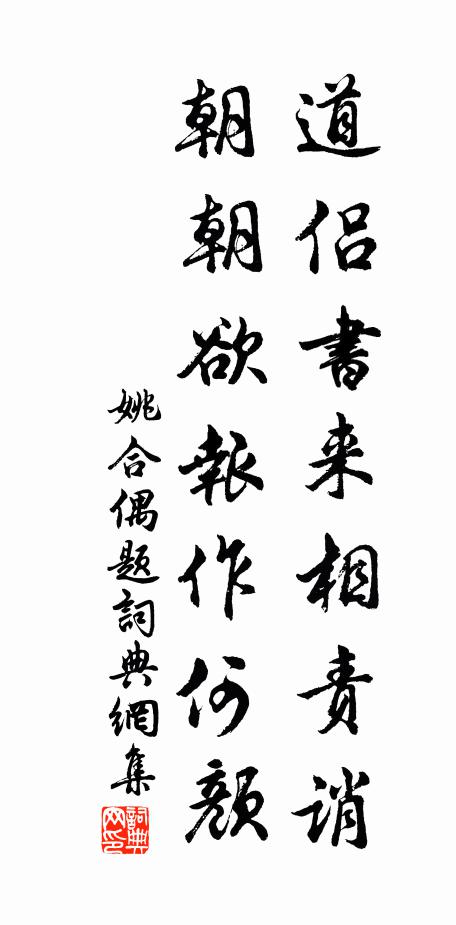 道侣書来相責誚
朝朝欲報作何顔
姚合偶題詞典網集
詞典网印